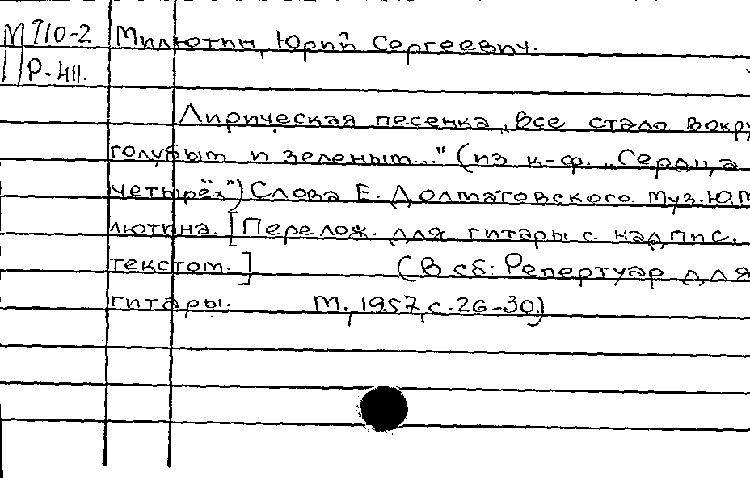 М 710-2 Милютин, Юрий Сергеевич.
Р-411.
Лирическая песенка „Все стало вокру
голубым и зеленым..." (из к-ф. „Сердца
четырёх") Слова Е. Долматовского. Муз. Ю. М
лютина. [Перелож. для гитары с надпис.
текстом.] (В сб: Репертуар для
гитары. М., 1957, с. 26-30)